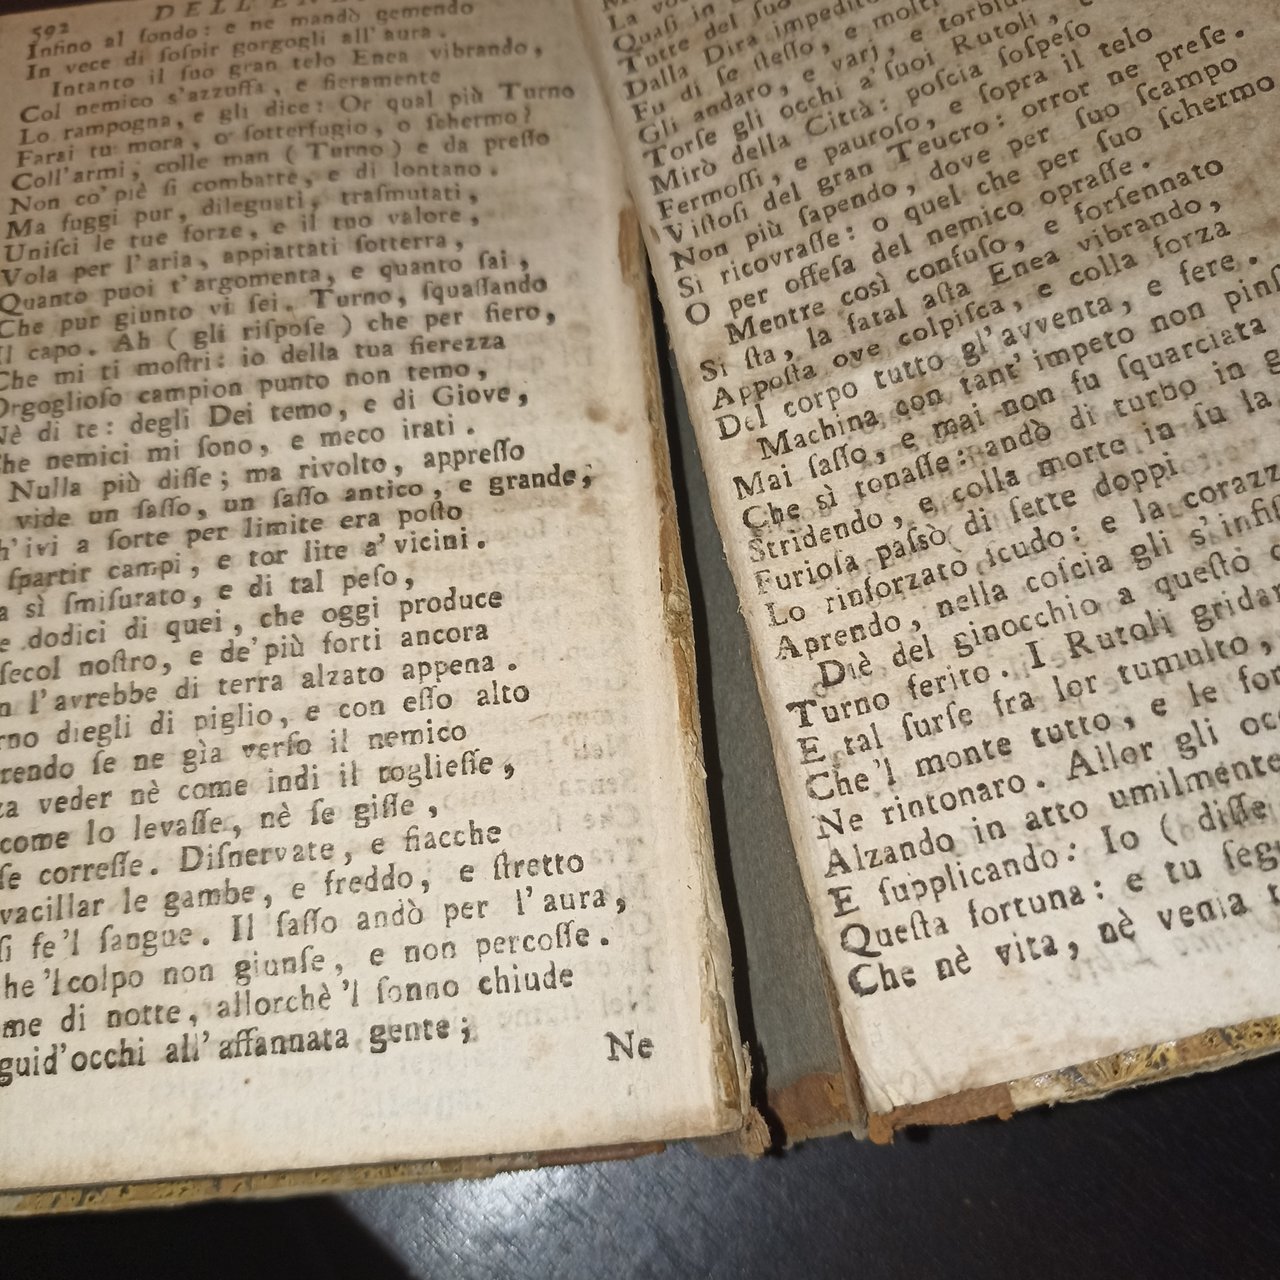 592
DELL'EN
Infino al fondo: e ne mandò gemendo
In vece di ſoſpir gorgogli all'aura.
Intanto il ſuo gran telo Enea vibrando,
Col nemico s'azzuffa, e fieramente
Lo rampogna, e gli dice: Or qual più Turno
Farai tu mora, o ſotterfugio, o ſchermo?
Coll'armi, colle man (Turno) e da preſſo
Non co' piè ſi combatte, e di lontano.
Ma fuggi pur, dileguati, traſmutati,
Uniſci le tue forze, e il tuo valore,
Vola per l'aria, appiattati ſotterra,
Quanto puoi t'argomenta, e quanto ſai,
Che pur giunto vi ſei. Turno, ſquaſſando
Il capo. Ah (gli riſpoſe) che per fiero,
Che mi ti moſtri: io della tua fierezza
Orgoglioſo campion punto non temo,
Nè di te: degli Dei temo, e di Giove,
Che nemici mi ſono, e meco irati.
Nulla più diſſe; ma rivolto, appreſſo
vide un ſaſſo, un ſaſſo antico, e grande,
h'ivi a ſorte per limite era poſto
ſpartir campi, e tor lite a' vicini.
a sì ſmiſurato, e di tal peſo,
e dodici di quei, che oggi produce
ſecol noſtro, e de' più forti ancora
n l'avrebbe di terra alzato appena.
rno diegli di piglio, e con eſſo alto
rendo ſe ne gìa verſo il nemico
za veder nè come indi il toglieſſe,
come lo levaſſe, nè ſe giſſe,
ſe correſſe. Diſnervate, e fiacche
vacillar le gambe, e freddo, e ſtretto
ſi fe 'l ſangue. Il ſaſſo andò per l'aura,
he 'l colpo non giunſe, e non percoſſe.
me di notte, allorchè 'l ſonno chiude
guid'occhi all'affannata gente;
Ne
La vo
Quaſi in
Tutte del ſuo
Dalla Dira impedito
Fu di ſe ſteſſo, e molti
Gli andaro, e varj, e torbid
Torſe gli occhi a' ſuoi Rutoli, e
Mirò della Città: poſcia ſoſpeſo
Fermoſſi, e pauroſo, e ſopra il telo
Viſtoſi del gran Teucro: orror ne preſe.
Non più ſapendo, dove per ſuo ſcampo
Si ricovraſſe: o quel che per ſuo ſchermo
O per offeſa del nemico opraſſe.
Mentre così confuſo, e forſennato
Si ſta, la fatal aſta Enea vibrando,
Appoſta ove colpiſca, e colla forza
Del corpo tutto gl'avventa, e fere.
Machina con tant' impeto non pinſ
Mai ſaſſo, e mai non fu ſquarciata
Che sì tonaſſe: andò di turbo in g
Stridendo, e colla morte in ſu la
Furioſa paſsò di ſette doppi
Lo rinforzato ſcudo: e la corazz
Aprendo, nella coſcia gli s'infiſ
Diè del ginocchio a queſto c
Turno ferito. I Rutoli gridar
E tal ſurſe fra lor tumulto,
Che 'l monte tutto, e le for
Ne rintonaro. Allor gli occ
Alzando in atto umilmente
E ſupplicando: Io (diſſe
Queſta fortuna: e tu ſegu
Che nè vita, nè venia